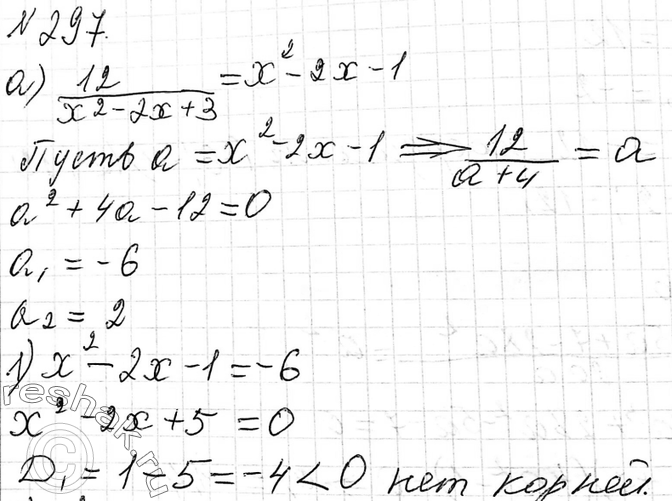 № 297.
а) 12/(x² - 2x + 3) = x² - 2x - 1
Пусть a = x² - 2x - 1 ⟹ 12/(a + 4) = a
a² + 4a - 12 = 0
a₁ = -6
a₂ = 2
1) x² - 2x - 1 = -6
x² - 2x + 5 = 0
D₁ = 1 - 5 = -4 < 0 нет корней.